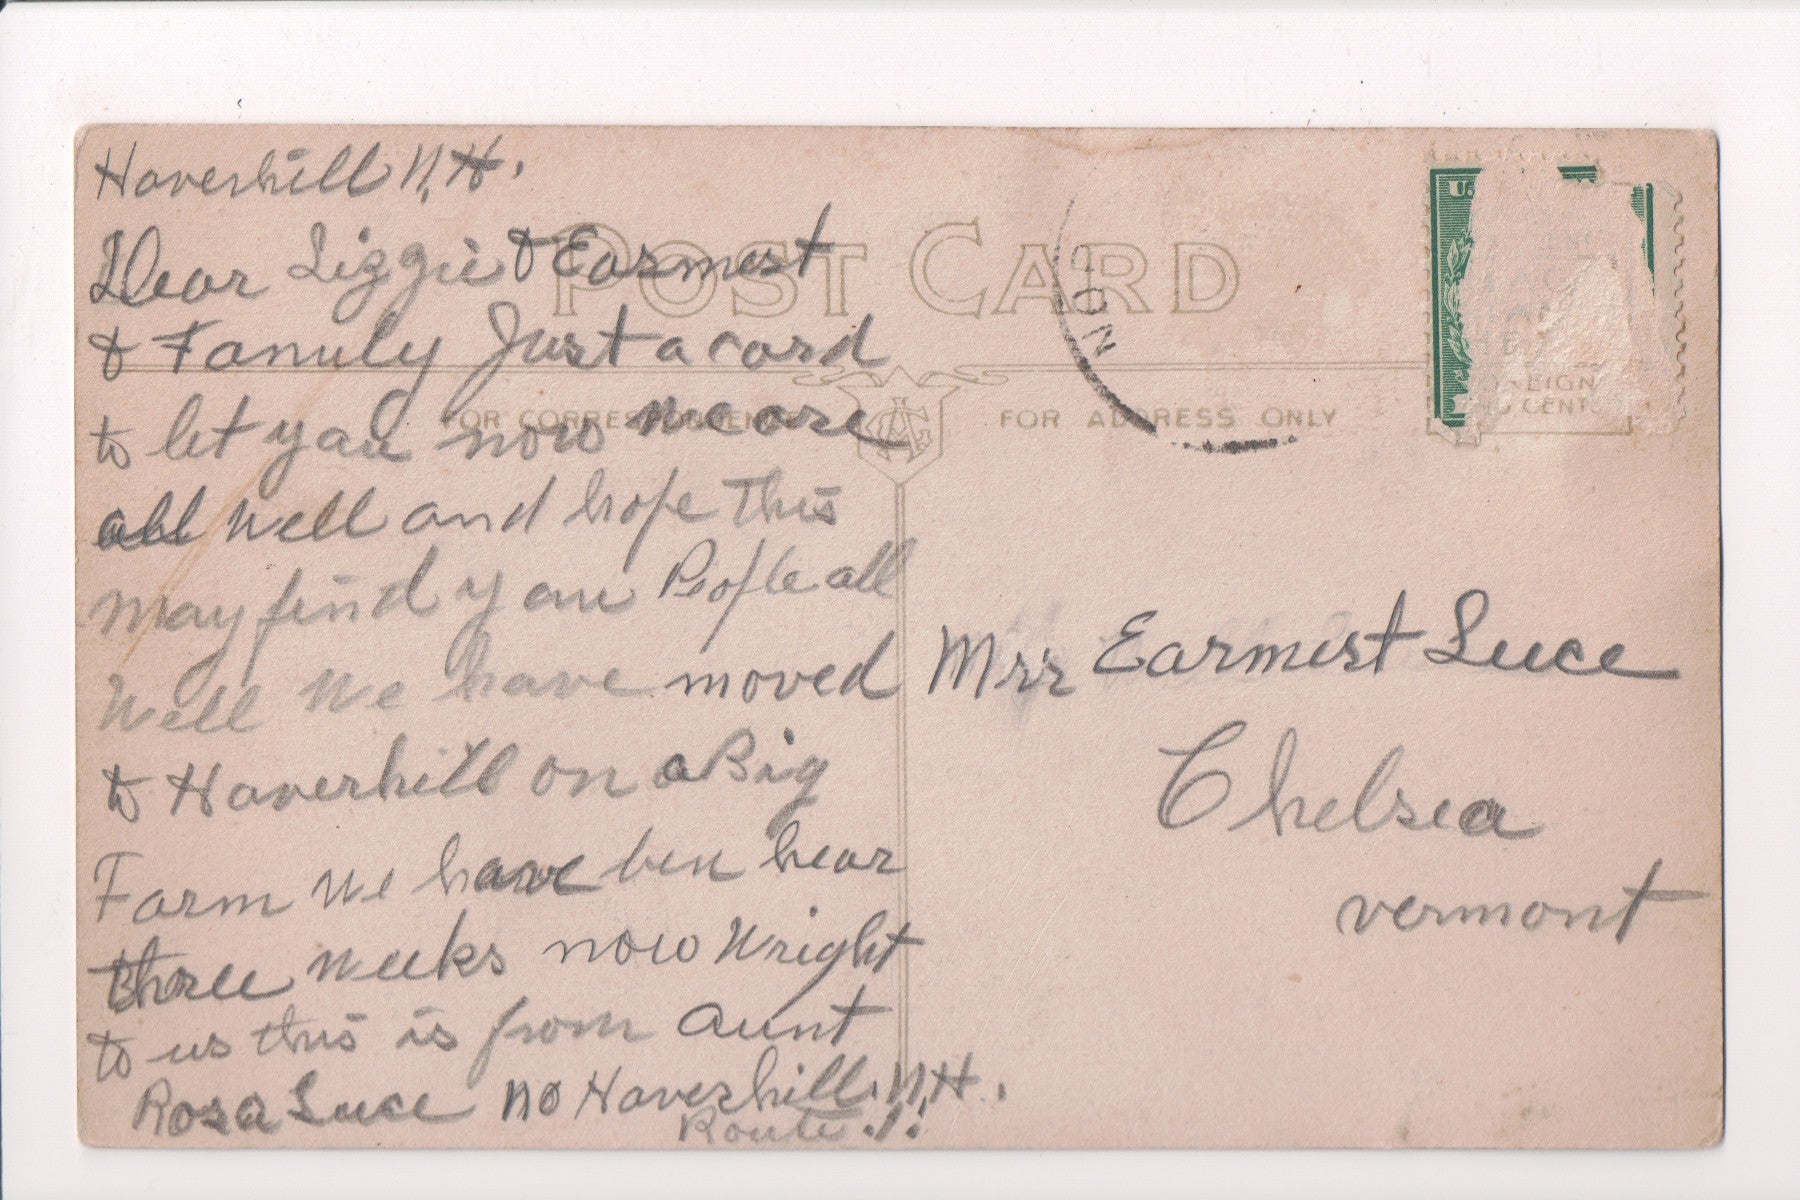 Haverhill N.H.
Dear Lizzie & Earmest
& Family Just a card
to let you now we are
all well and hope this
may find you People all
well we have moved
to Haverhill on a Big
Farm we have ben hear
three weeks now Wright
to us this is from Aunt
Rosa Luce no Haverhill. N.H.
Route .1.
POST CARD
FOR CORRESPONDENCE
FOR ADDRESS ONLY
NO
U.
Mrs Earmest Luce
Chelsea
vermont